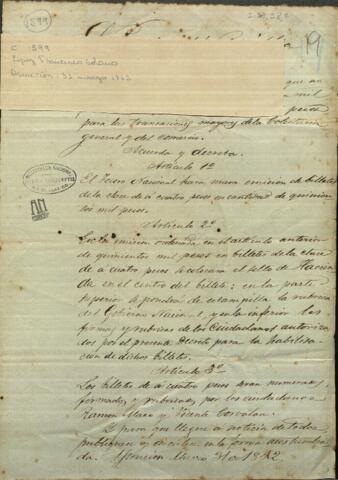 1899
19
C 1899
López Francisco Solano
Asunción, 31 marzo 1862
que un
mil
pesos
para las transaciones mayores de la Colecturia
general y del comercio.
Acuerda y decreta.
Articulo 1º
El Tesoro Nacional hará nueva emision de billetes
de la clase de á cuatro pesos en cantidad de quinien
tos mil pesos.
Articulo 2º
En la emision ordenada en el articulo anterior
de quinientos mil pesos en billetes de la clase
de á cuatro pesos se colocará el sello de Hacien
da en el centro del billete: en la parte
superior se pondrá de estampilla la rubrica
del Gobierno Nacional, y en la inferior las
firmas y rubricas de los Ciudadanos autoriza
dos por el presente Decreto para la habilita
cion de dichos billetes.
Articulo 3º
Los billetes de á cuatro pesos serán numerados,
firmados y rubricados por los ciudadanos
Ramon y Vicente
Y para que llegue á noticia de todos
publiquese y en la forma acostumbra
da. Asuncion Marzo 31 de 1862